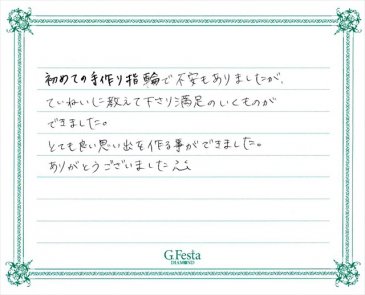 初めての手作り指輪で不安もありましたが、
ていねいに教えて下さり満足のいくものが
できました。
とても良い思い出を作る事ができました。
ありがとうございました
G.Festa
DIAMOND